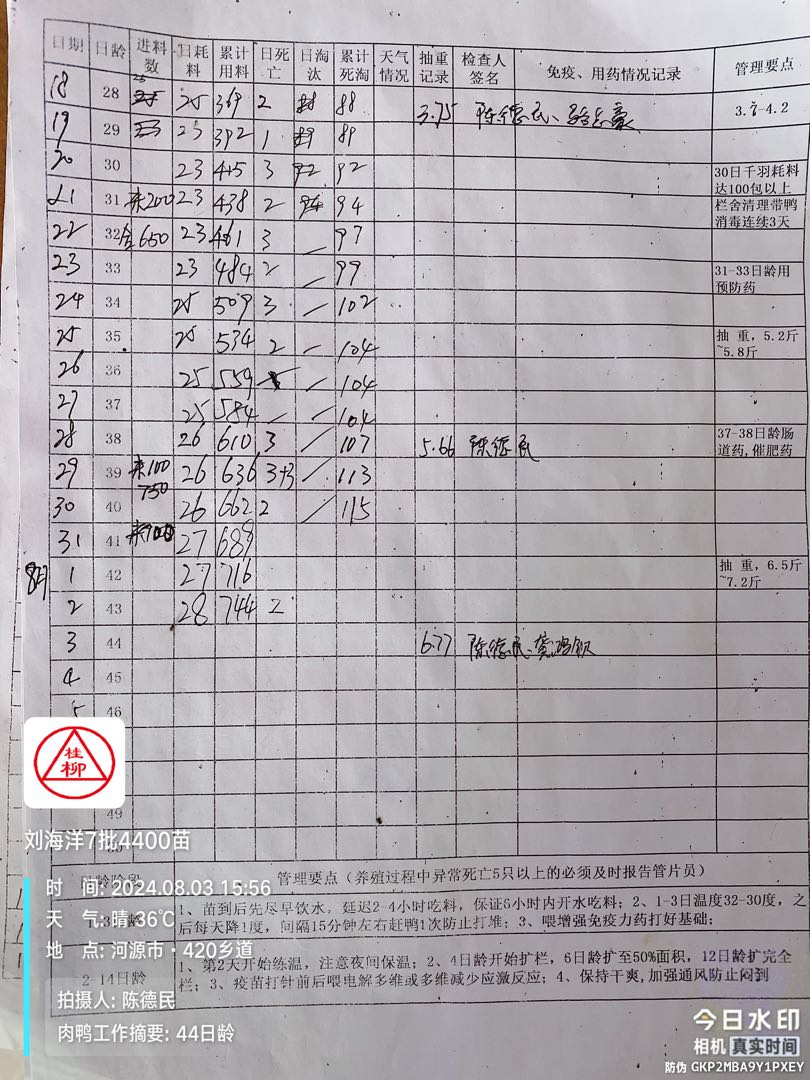 日期 日龄 进料数 日耗料 累计用料 日死亡 日淘汰 累计死淘 天气情况 抽重记录 检查人签名 免疫、用药情况记录 管理要点
18 28 25 369 2 88 3.75 陈德民、 3.7-4.2
19 29 23 392 1 89
20 30 23 415 3 92 30日千羽耗料达100包以上
21 31 200 23 438 2 94 94 栏舍清理带鸭消毒连续3天
22 32 650 23 461 3 97
23 33 23 484 2 99 31-33日龄用预防药
24 34 25 509 3 102
25 35 25 534 2 104 抽 重,5.2斤~5.8斤
26 36 25 559 104
27 37 25 584 104
28 38 26 610 3 107 5.66 陈德民 37-38日龄肠道药,催肥药
29 39 100 750 26 636 3+3 113
30 40 26 662 2 115
31 41 27 689
8月 1 42 27 716 抽 重,6.5斤~7.2斤
2 43 28 744 2
3 44 6.77 陈德民
4 45
5 46
桂柳
49
刘海洋7批4400苗
日龄阶段 管理要点(养殖过程中异常死亡5只以上的必须及时报告管片员)
时 间: 2024.08.03 15:56
1、苗到后先尽早饮水,延迟2-4小时吃料,保证6小时内开水吃料;2、1-3日温度32-30度,之
天 气: 晴 36℃
后每天降1度,间隔15分钟左右赶鸭1次防止打堆;3、喂增强免疫力药打好基础;
地 点: 河源市·420乡道
1、第2天开始练温,注意夜间保温;2、4日龄开始扩栏,6日龄扩至50%面积,12日龄扩完全
2-14日龄
栏;3、疫苗打针前后喂电解多维或多维减少应激反应;4、保持干爽,加强通风防止闷到
拍摄人: 陈德民
肉鸭工作摘要: 44日龄
今日水印
相机 真实时间
防伪 GKP2MBA9Y1PXEY